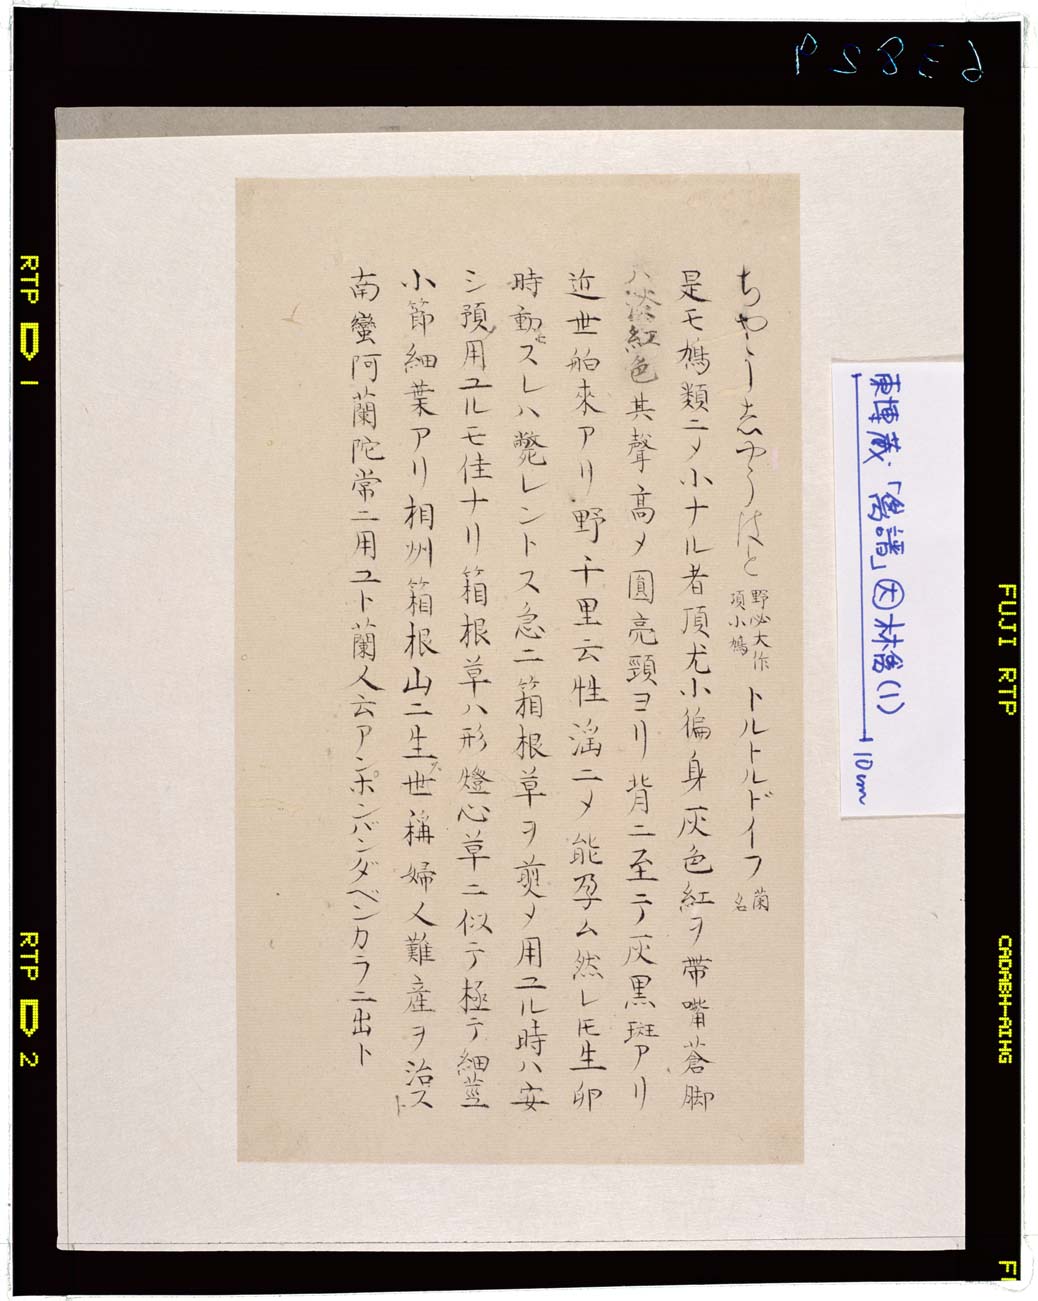 ちやうしやうはと 野必大作項小鳩 トルトルドイフ 蘭名
是モ鳩類ニメ小ナル者頂尤小徧身灰色紅ヲ帯嘴蒼脚
ハ淡紅色其聲高メ圓亮頸ヨリ背ニ至テ灰黒斑アリ
近世舶來アリ野千里云性滛ニメ能孕ム然レ𪜈生卵
時動モスレハ斃レントス急ニ箱根草ヲ煎メ用ユル時ハ安
シ預メ用ユルモ佳ナリ箱根草ハ形燈心草ニ似テ極テ細莖
小節細葉アリ相州箱根山ニ生ス世稱婦人難産ヲ治スト
南蠻阿蘭陀常ニ用ユト蘭人云アンボンバンダベンガラニ出ト
東博蔵「禽譜」 大 林禽(1)
10cm
65829
RTP 1
RTP 2
FUJI RTP